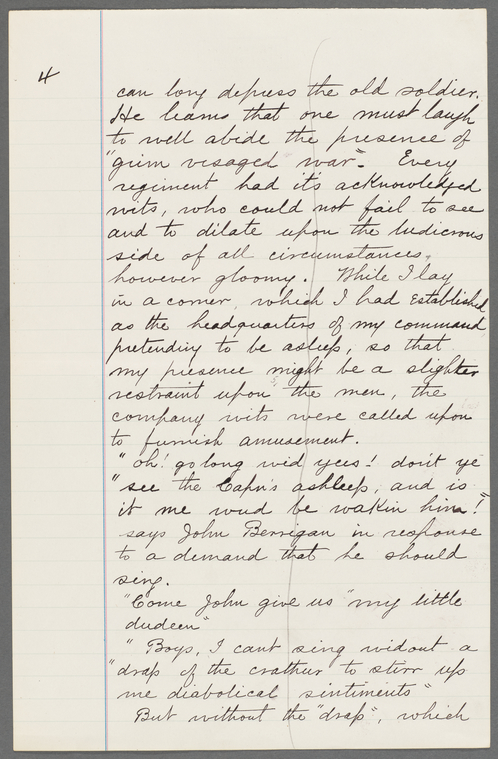 4
can long depress the old soldier.
He learns that one must laugh
to well abide the presence of
"grim visaged war". Every
regiment had it's acknowledged
wits, who could not fail to see
and to dilate upon the ludicrous
side of all circumstances,
however gloomy. While I lay
in a corner, which I had established
as the headquarters of my command,
pretending to be asleep, so that
my presence might be a slighter
restraint upon the men, the
company wits were called upon
to furnish amusement.
"Oh! go long wid yees! don't ye
"see the Capn's ashleep, and is
it me wud be wakin him!"
says John Berrigan in response
to a demand that he should
sing.
"Come John give us "my little
dudeen"
"Boys, I cant sing widout a
"drap of the crathur to stirr up
me diabolical sintiments"
But without the "drap", which